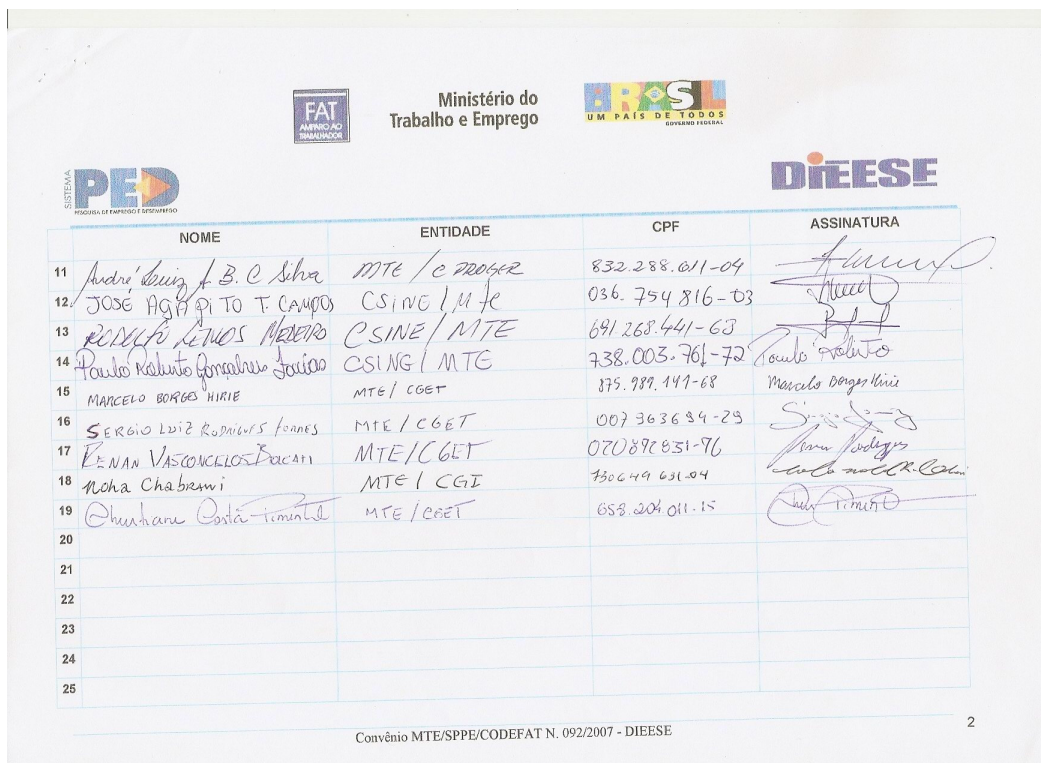 FAT
AMPARO AO
TRABALHADOR
Ministério do
Trabalho e Emprego
BRASIL
UM PAÍS DE TODOS
GOVERNO FEDERAL
SISTEMA
PED
PESQUISA DE EMPREGO E DESEMPREGO
DIEESE
NOME ENTIDADE CPF ASSINATURA
11 André Luiz A. B. C Silva MTE / CPROGER 832.288.611-04
12 JOSÉ AGAPITO T. CAMPOS CSINE / MTE 036.754816-03
13 RODOLFO LEMOS MEDEIRO CSINE / MTE 691.268.441-63
14 Paulo Roberto Gonçalves CSINE / MTE 738.003.761-72 Paulo Roberto
15 MARCELO BORGES HIRIE MTE / CGET 875.989.141-68 Marcelo Borges Hirie
16 SERGIO LUIZ RODRIGUES TORRES MTE / CGET 007963694-29
17 RENAN VASCONCELOS MTE / CGET 020892831-76
18 Noha Chabrawi MTE / CGI 730649 631-04
19 Christiane Costa-Pimentel MTE / CGET 658.204.011-15
20
21
22
23
24
25
Convênio MTE/SPPE/CODEFAT N. 092/2007 - DIEESE
2